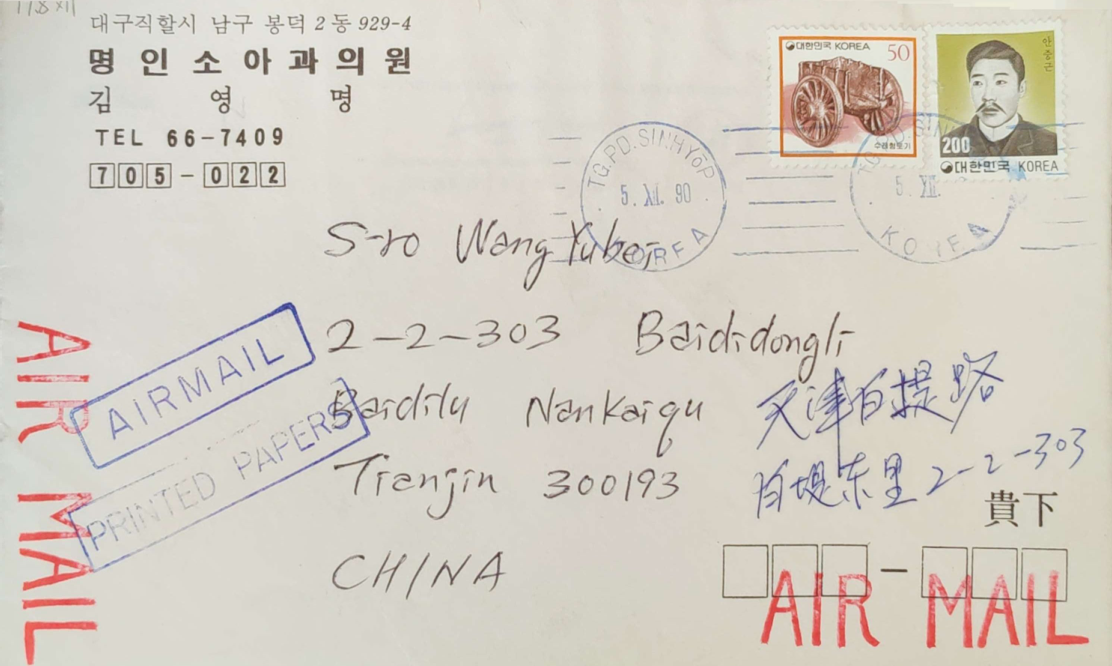 대구직할시 남구 봉덕 2 동 929-4
명 인 소 아 과 의 원
김 영 명
TEL 66-7409
705-022
대한민국 KOREA 50
수레형화기
안중근
200
대한민국 KOREA
TG.PD.SINHYOP
5. XII. 90
KOREA
5. XII.
KOREA
Wang Yubei
2-2-303 Baididongli
Baidilu Nankaiqu
Tianjin 300193
CHINA
天津百提路
百堤东里 2-2-303
貴下
AIRMAIL
PRINTED PAPERS
AIR MAIL
AIR MAIL